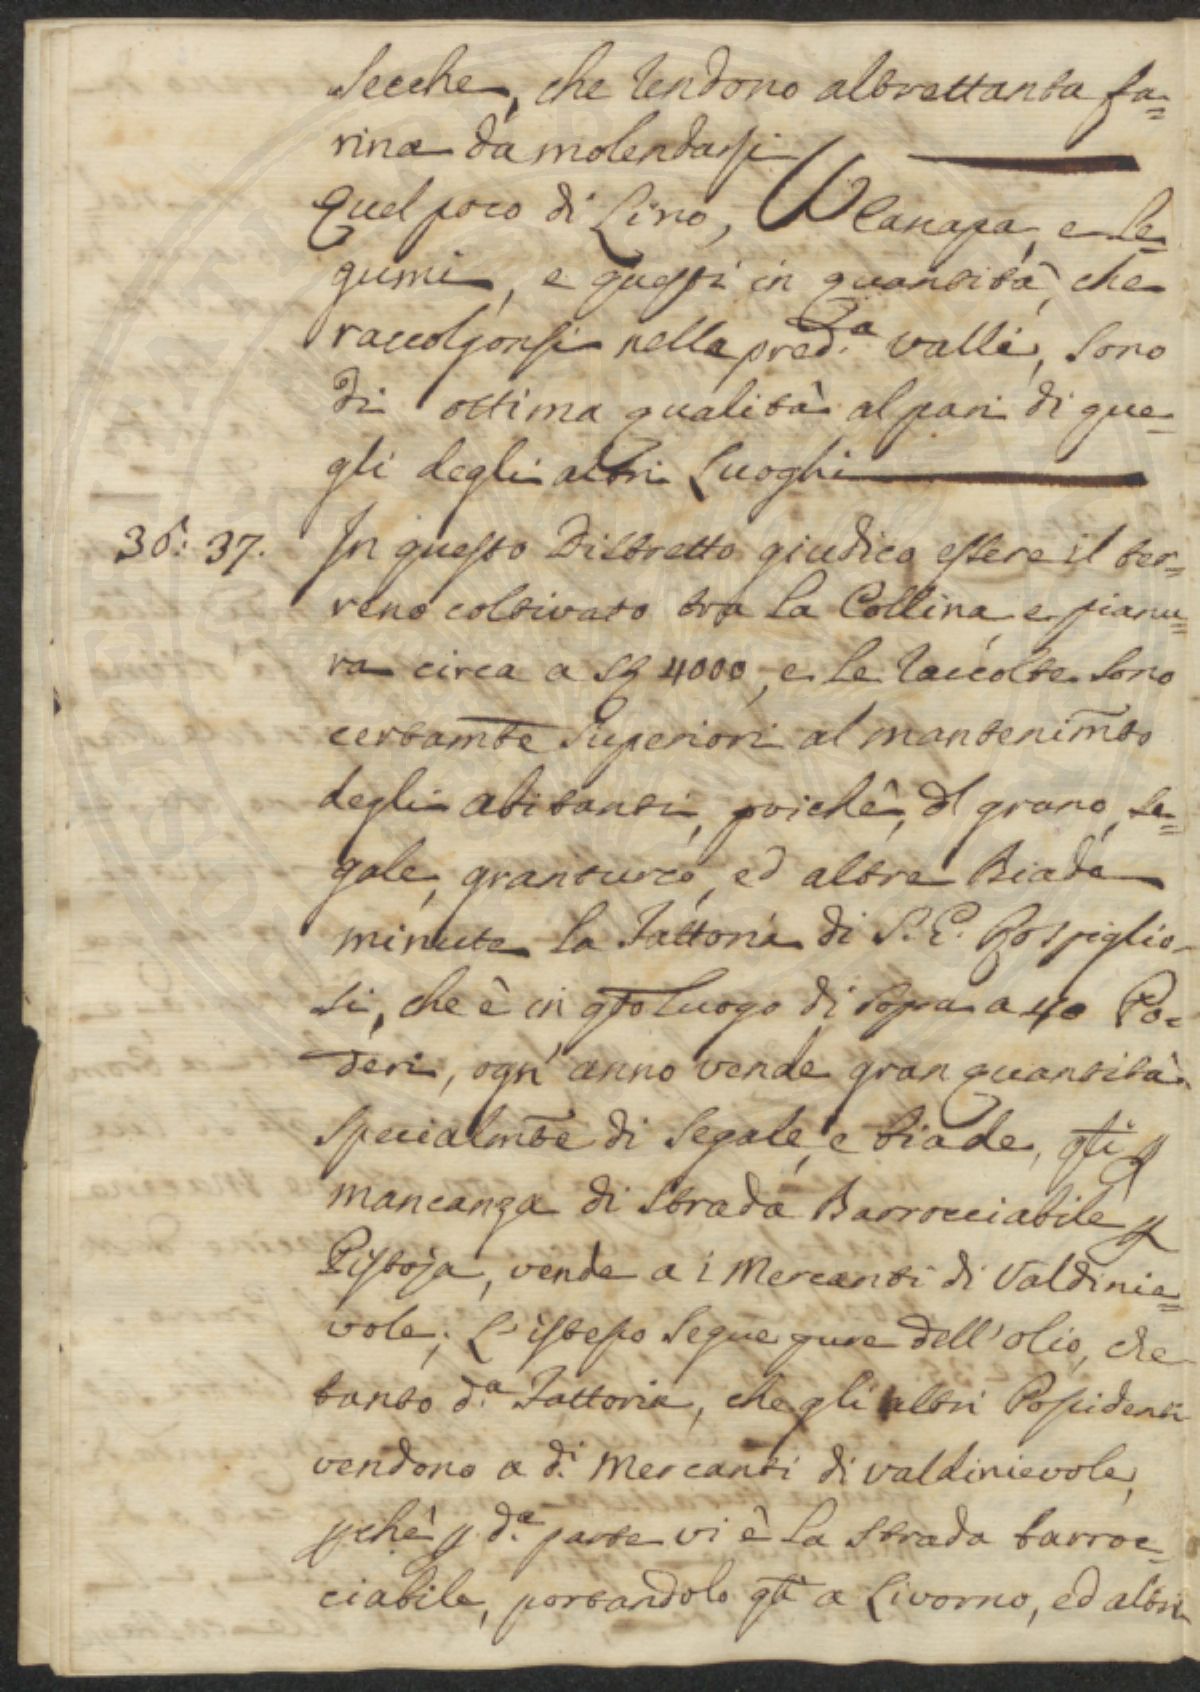 secche, che rendono altrettanta fa=
rina da molendarsi
Quel poco di Lino, Canapa, e le=
gumi, e questi in quantità, che
raccolgonsi nella pred.a valle, sono
di ottima qualità al pari di que=
gli degli altri Luoghi
36: 37. In questo Distretto giudico essere il ter=
reno coltivato tra la Collina e pianu=
ra circa a 4000, e le raccolte sono
certamte superiori al mantenimto
degli abitanti, poichè, di grano, se=
gale, granturco, ed altre Biade
minute la Fattoria di S. E. Rospiglio=
si, che è in qto luogo di sopra a 40 Po=
deri, ogn' anno vende gran quantità
specialmte di segale, e biade, qti p
mancanza di strada Barrocciabile p
Pistoja, vende a i Mercanti di Valdinie=
vole; L'istesso segue pure dell'olio, che
tanto d.a Fattoria, che gli altri Possidenti
vendono a d.i Mercanti di valdinievole,
pchè p d.a parte vi è la strada barroc=
ciabile, portandolo qti a Livorno, ed altri